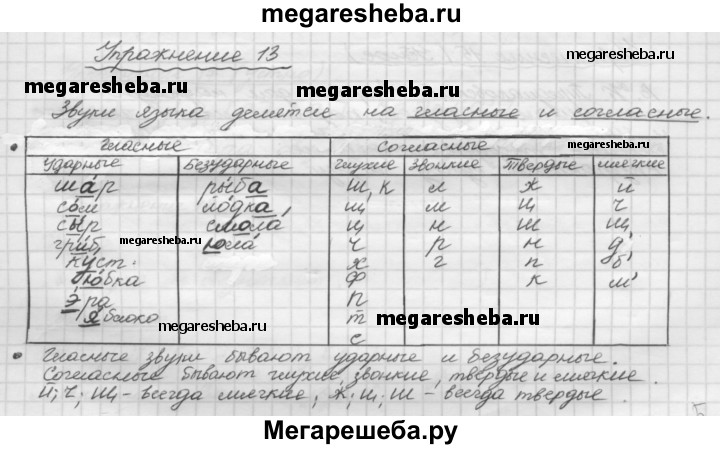 megaresheba.ru
Упражнение 13
megaresheba.ru
megaresheba.ru
Звуки языка делятся на гласные и согласные.
Гласные Согласные
Ударные Безударные Глухие Звонкие Твердые мягкие
шар рыба ш, к л ж й
сом лодка, щ м ц ч
сыр смола ц н ш щ
гриб юла ч р н д'
megaresheba.ru
megaresheba.ru
куст. х г п б'
юбка ф к м'
эра п
яблоко т
с
megaresheba.ru
megaresheba.ru
Гласные звуки бывают ударные и безударные.
Согласные бывают глухие, звонкие, твердые и мягкие.
Й; Ч; Щ - всегда мягкие, Ж; Ц; Ш - всегда твердые.
Мегарешеба.ру